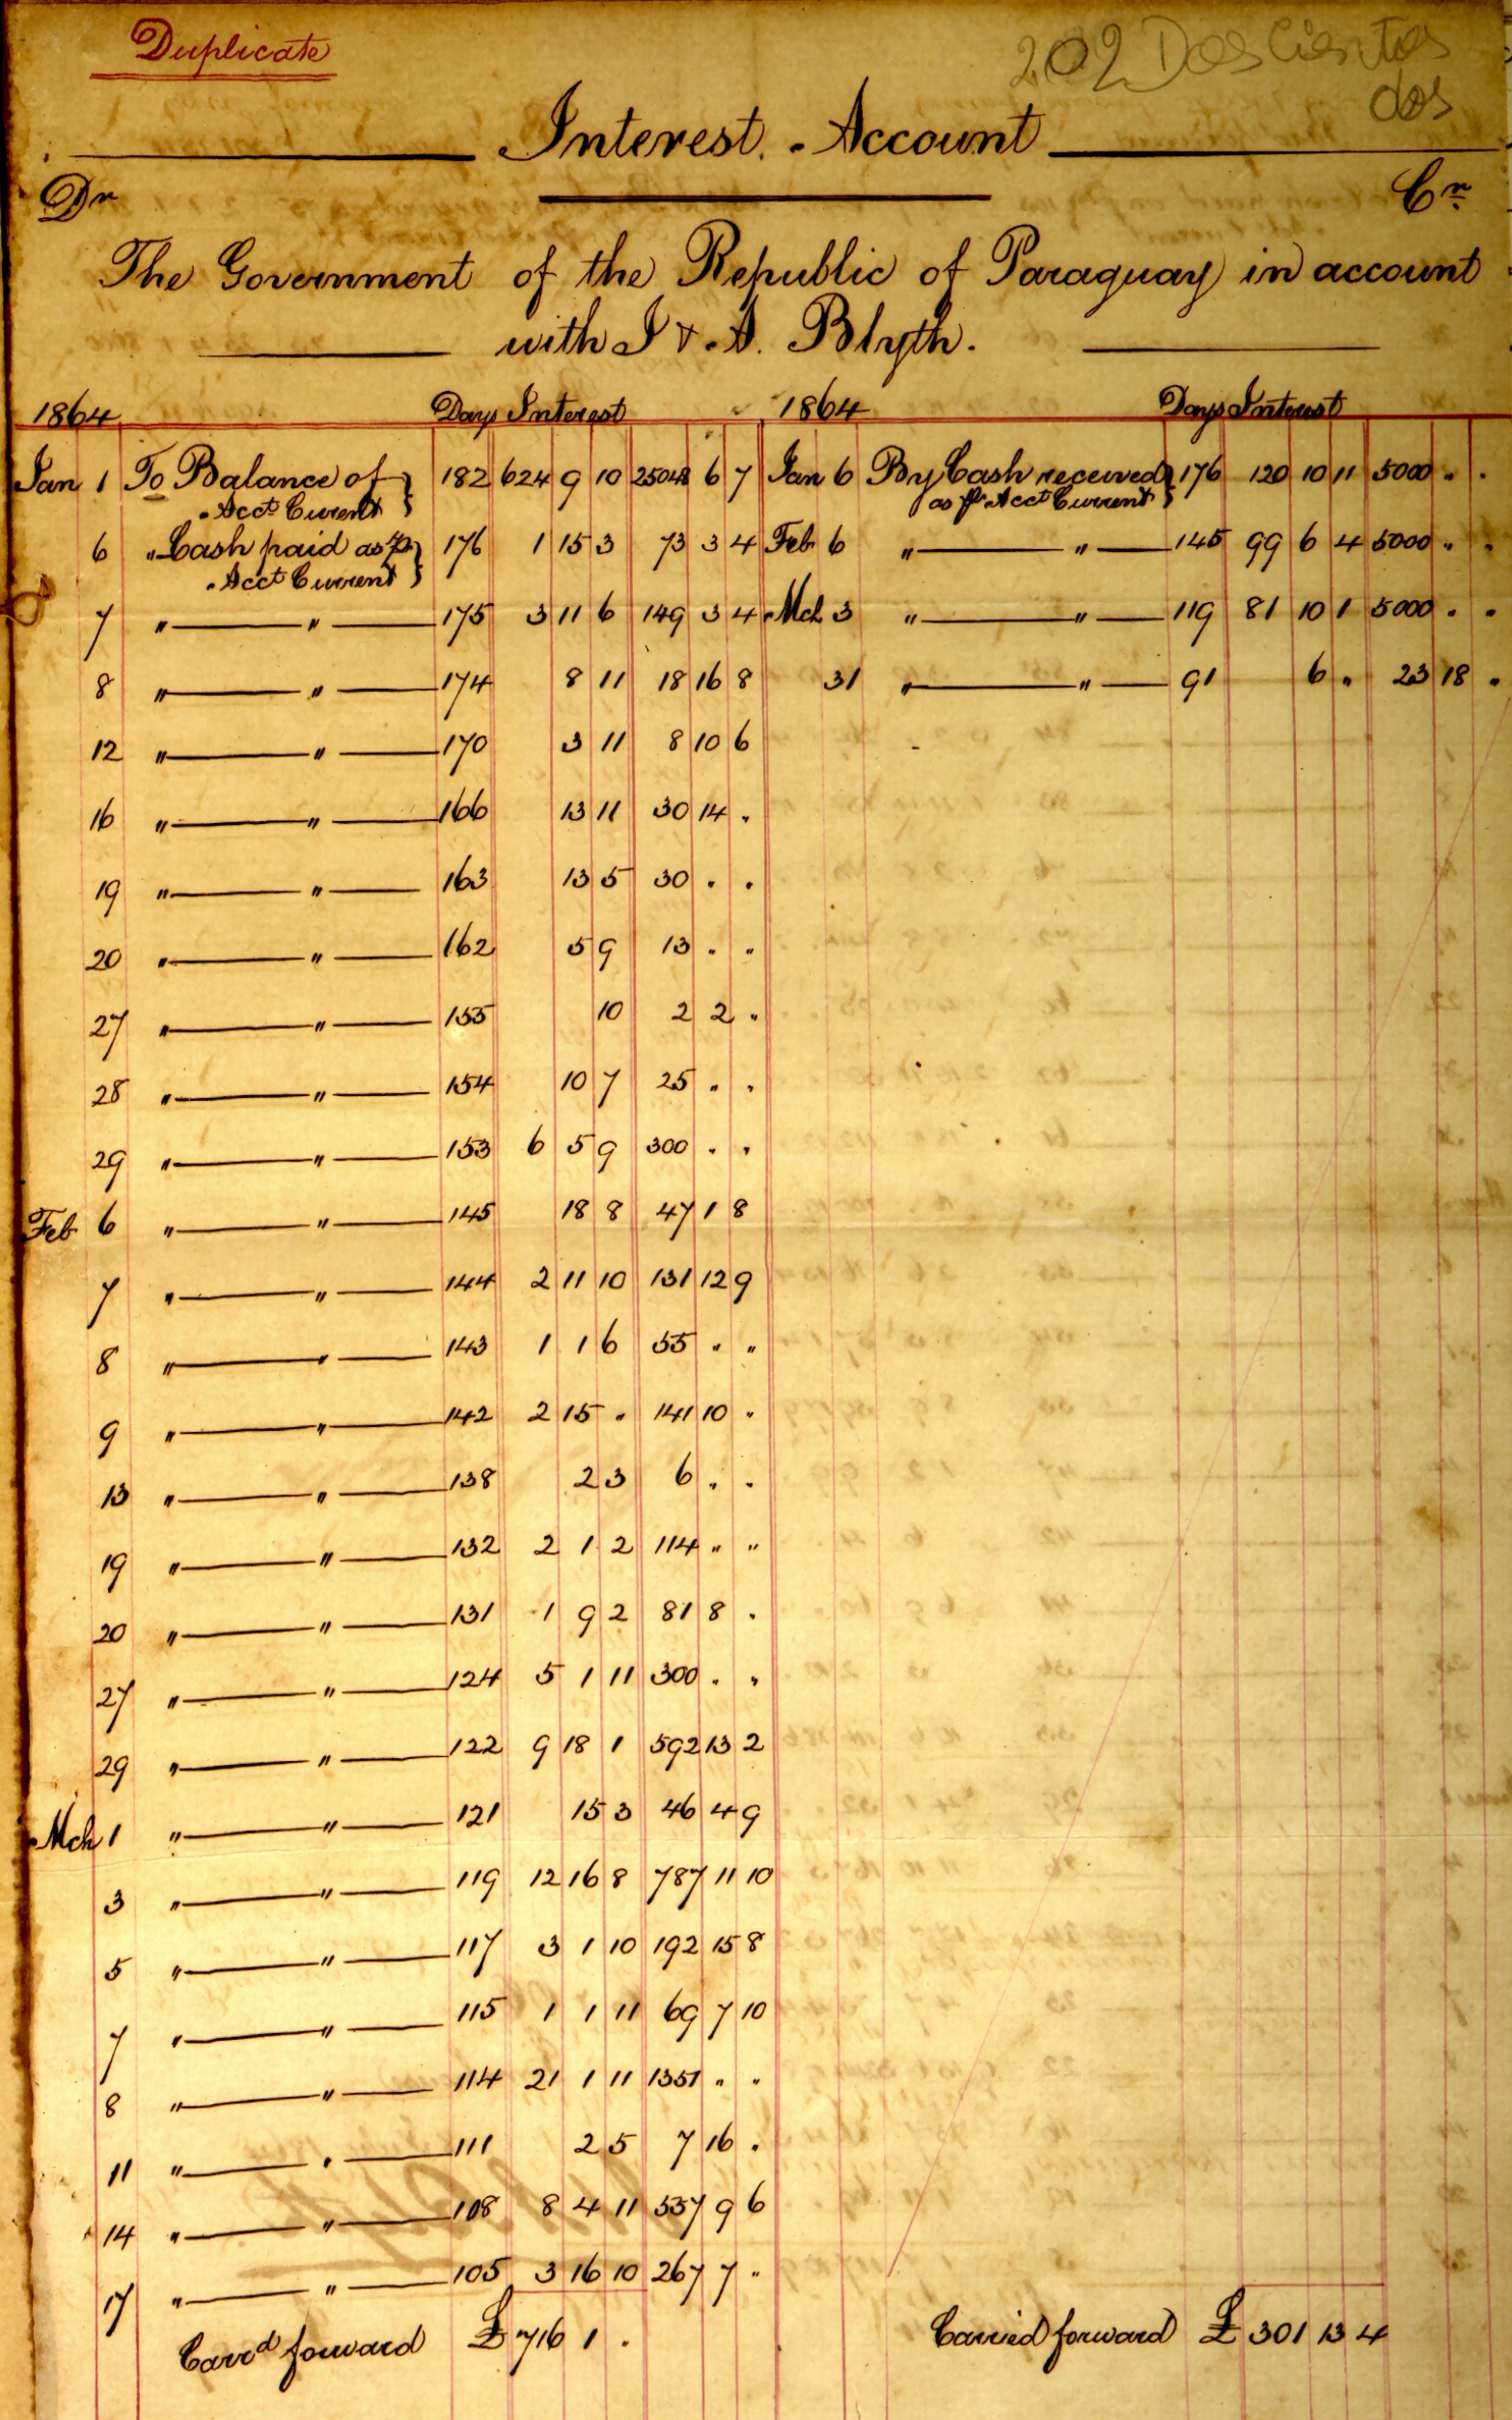 Duplicate
202 Doscientos
dos
Interest Account
Dr Cr
The Government of the Republic of Paraguay in account
with J & A. Blyth.
1864 Days Interest 1864 Days Interest
Jan 1 To Balance of Acct Current } 182 624 9 10 25048 6 7 Jan 6 By Cash received as pr Acct Current } 176 120 10 11 5000 " "
6 " Cash paid as pr Acct Current } 176 1 15 3 73 3 4 Feb 6 " " 145 99 6 4 5000 " "
7 " " 175 3 11 6 149 3 4 Mch 3 " " 119 81 10 1 5000 " "
8 " " 174 8 11 18 16 8 31 " " 91 6 " 23 18 "
12 " " 170 3 11 8 10 6
16 " " 166 13 11 30 14 "
19 " " 163 13 5 30 " "
20 " " 162 5 9 13 " "
27 " " 155 10 2 2 "
28 " " 154 10 7 25 " "
29 " " 153 6 5 9 300 " "
Feb 6 " " 145 18 8 47 1 8
7 " " 144 2 11 10 131 12 9
8 " " 143 1 1 6 55 " "
9 " " 142 2 15 " 141 10 "
13 " " 138 2 3 6 " "
19 " " 132 2 1 2 114 " "
20 " " 131 1 9 2 81 8 "
27 " " 124 5 1 11 300 " "
29 " " 122 9 18 1 592 13 2
Mch 1 " " 121 15 3 46 4 9
3 " " 119 12 16 8 787 11 10
5 " " 117 3 1 10 192 15 8
7 " " 115 1 1 11 69 7 10
8 " " 114 21 1 11 1351 " "
11 " " 111 2 5 7 16 "
14 " " 108 8 4 11 557 9 6
17 " " 105 3 16 10 267 7 "
Carrd forward £ 716 1 " Carried forward £ 301 13 4